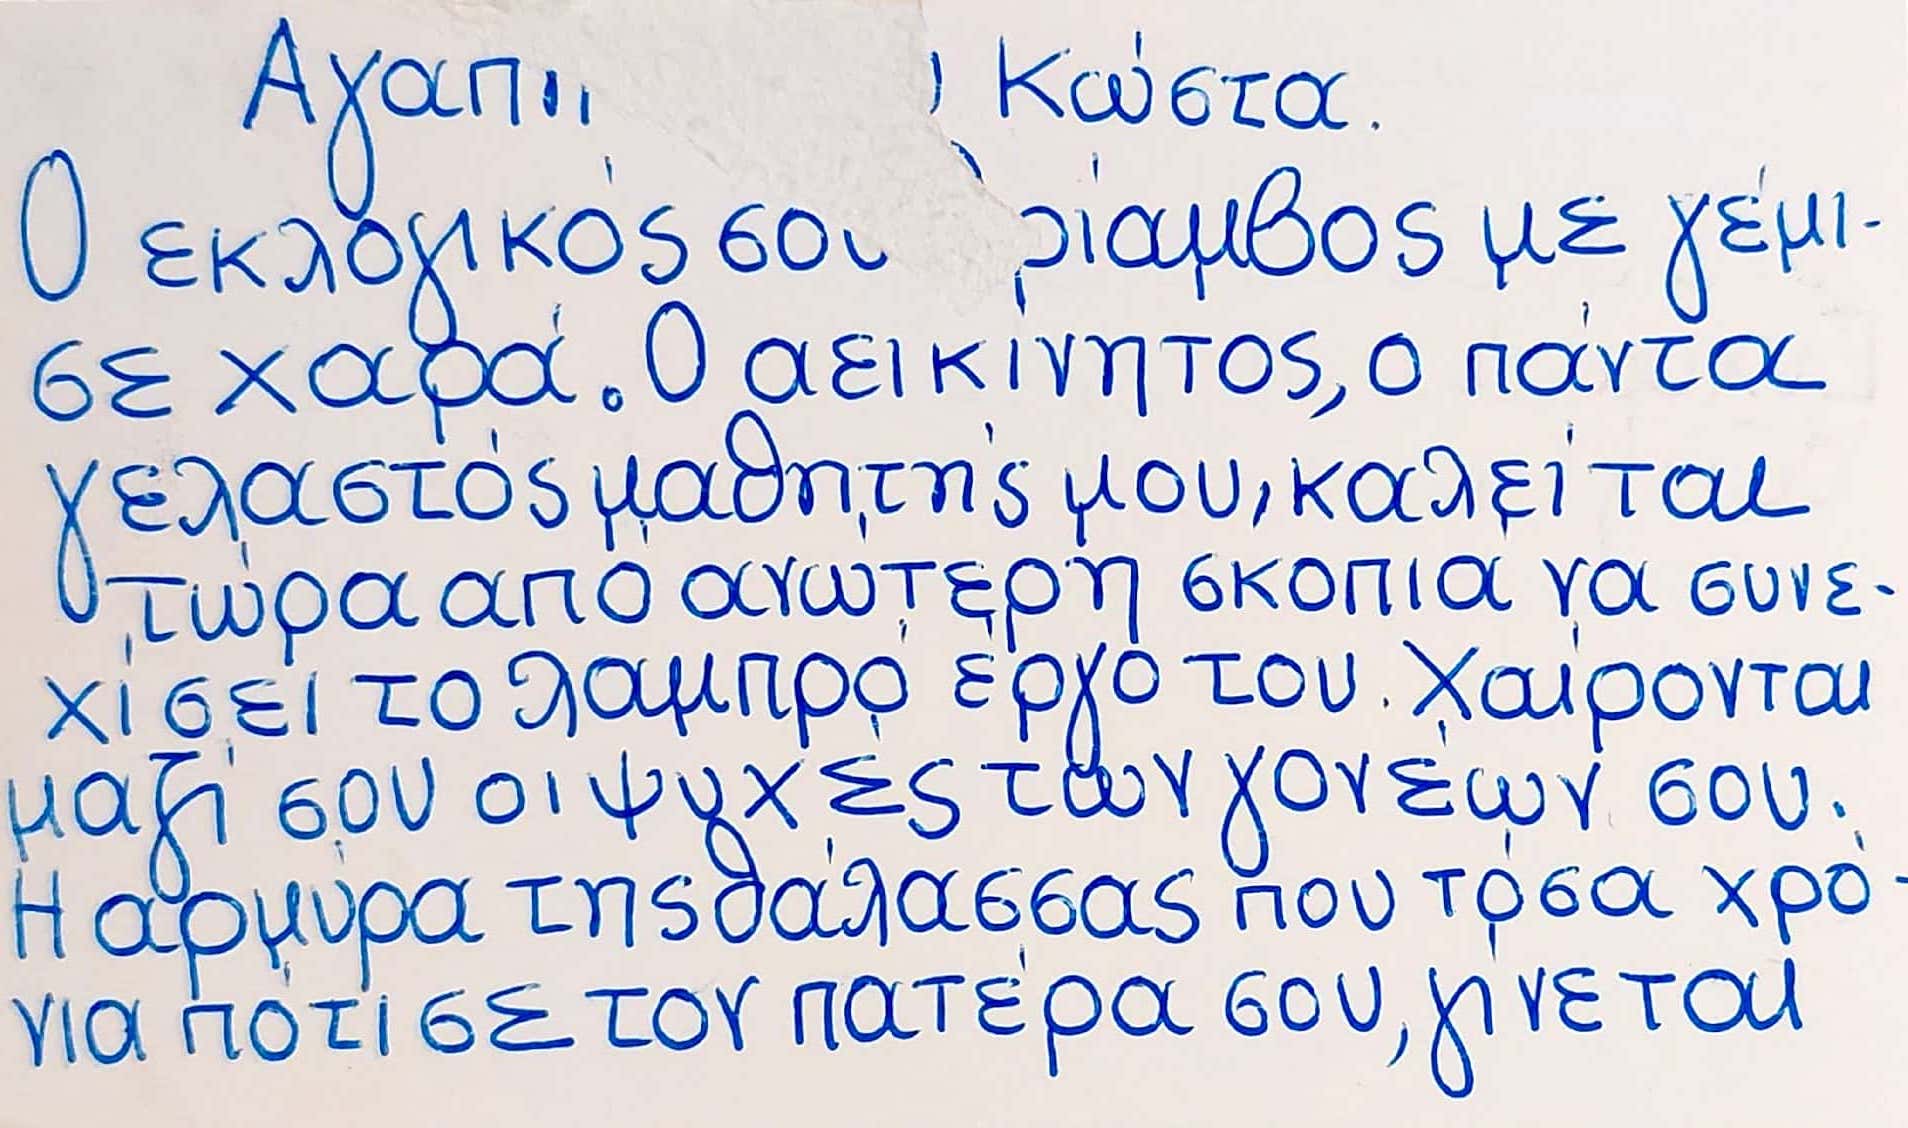 Κώστα.
Ο εκλογικός σου με γέμι-
σε χαρά. Ο αεικίνητος, ο πάντα
γελαστός μαθητής μου, καλείται
τώρα από ανώτερη σκοπιά να συνε-
χίσει το λαμπρό έργο του. Χαίρονται
μαζί σου οι ψυχές των γονέων σου.
Η αρμύρα της θάλασσας που τόσα χρό-
νια πότισε τον πατέρα σου, γίνεται